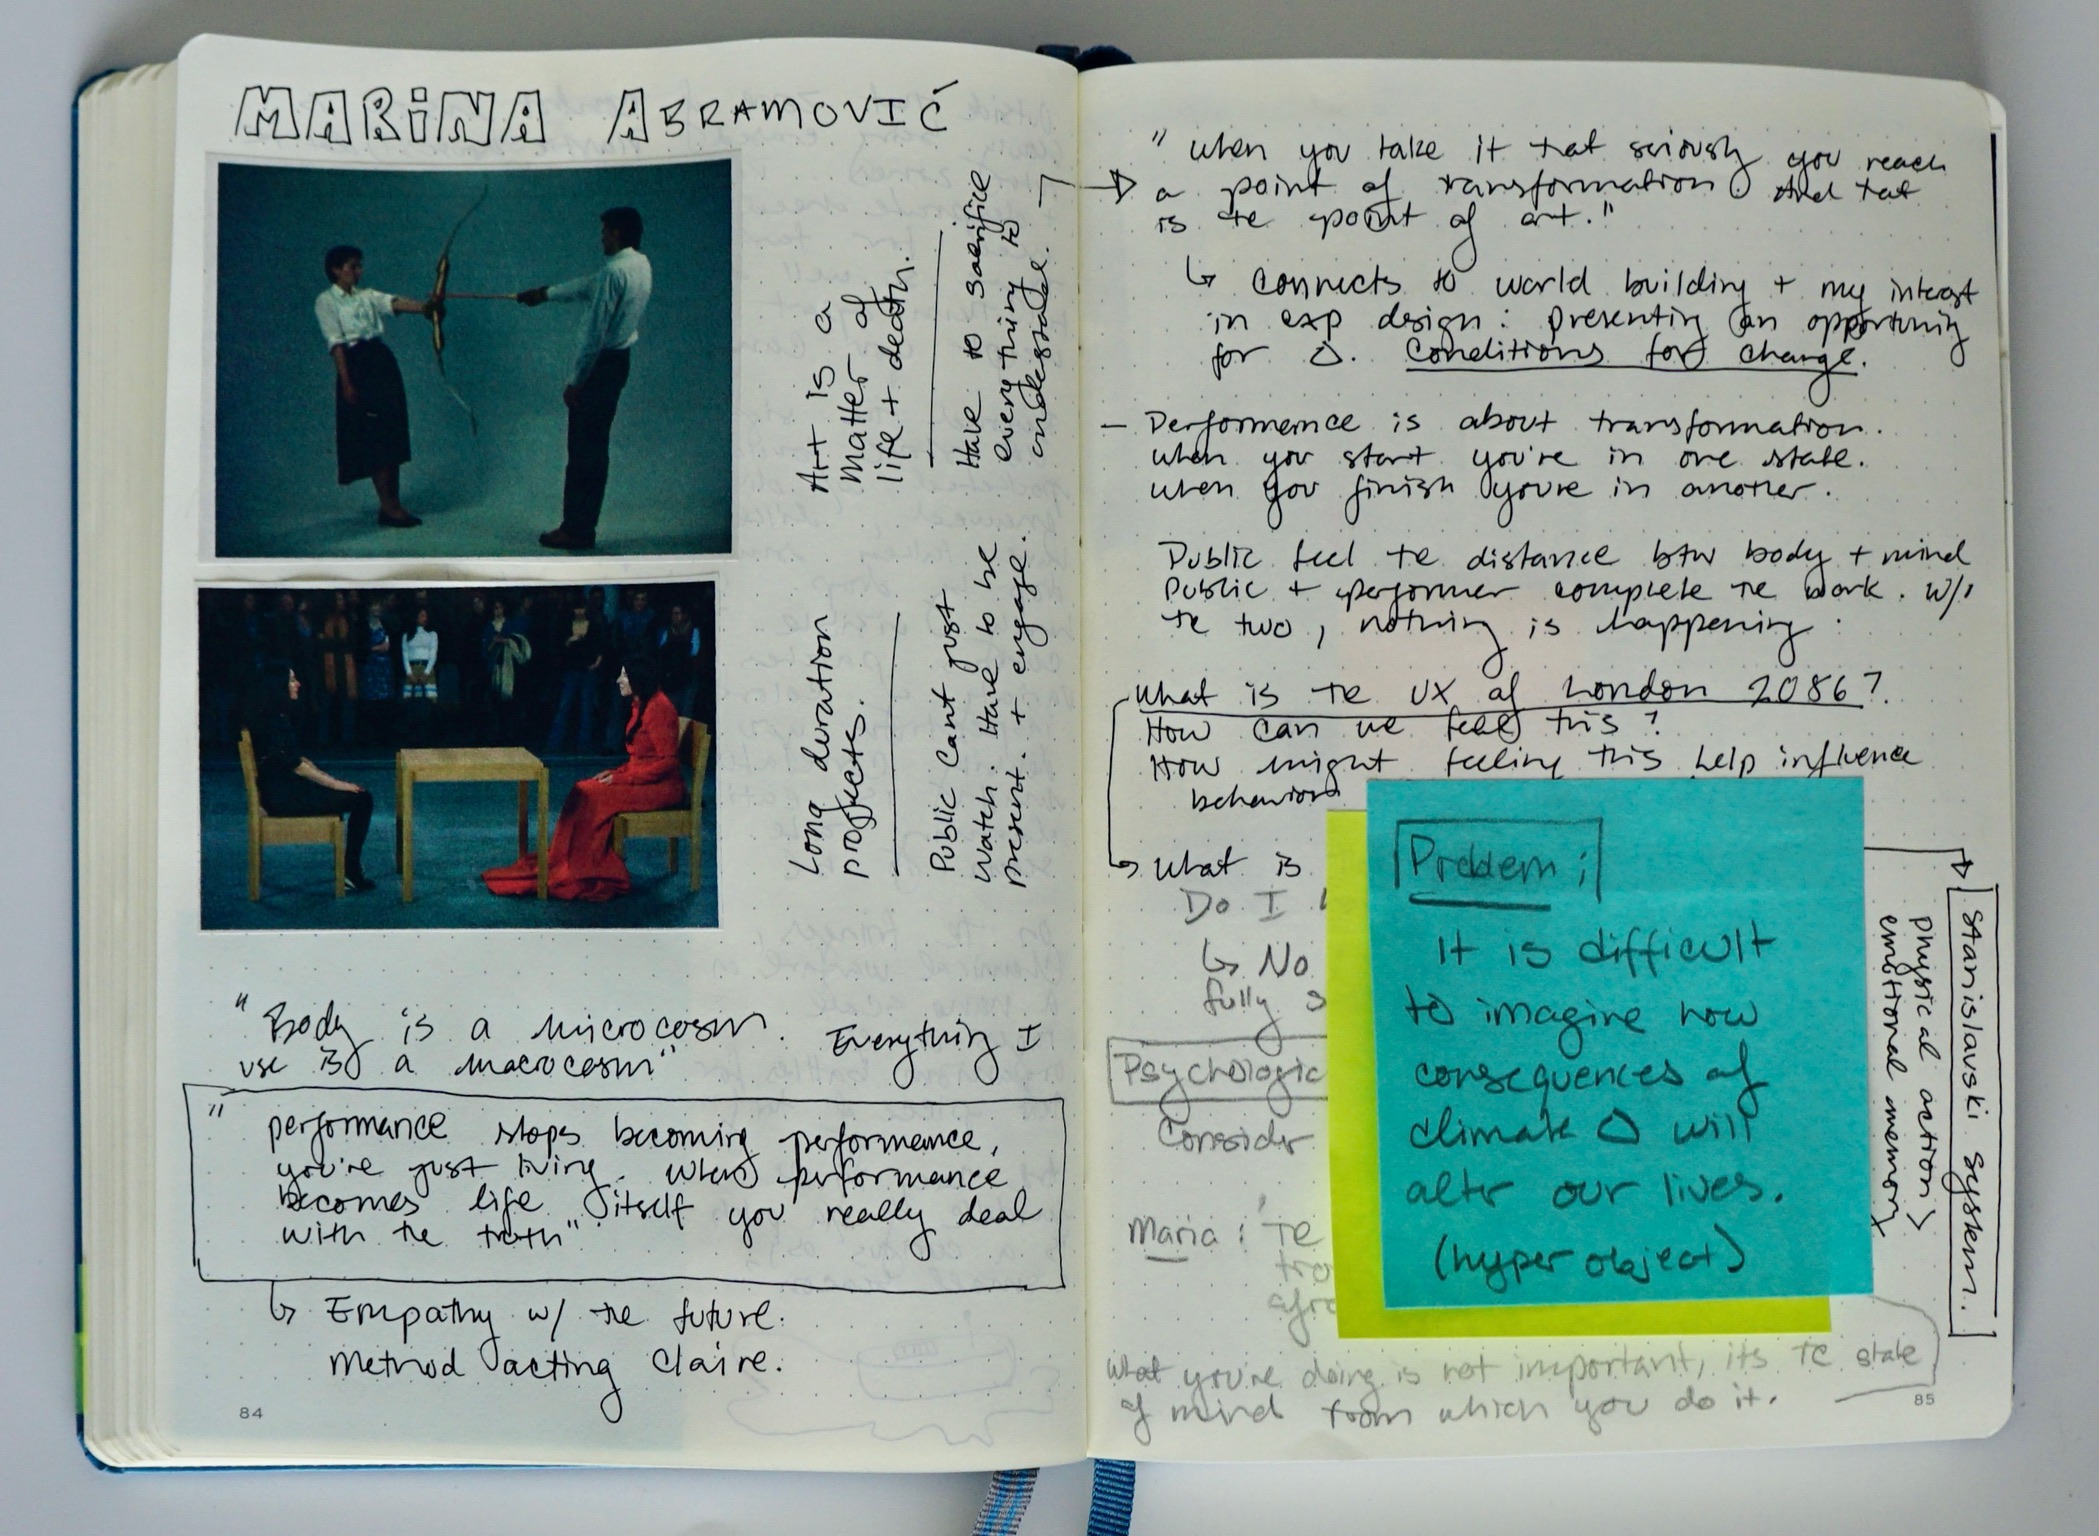 MARINA ABRAMOVIĆ
Art is a
matter of
life + death.
Have to sacrifice
everything to
understand.
Long duration
projects.
Public cant just
watch. Have to be
present. + engage.
"Body is a microcosm. Everything I
use is a macrocosm"
" performance stops becoming performance,
you're just living. When performance
becomes life itself you really deal
with te truth"
↳ Empathy w/ te future.
Method acting Claire.
84
" when you take it tat seriously you reach
a point of transformation. And tat
is te point of art."
↳ connects to world building + my interest
in exp design: presenting an opportunity
for Δ. Conditions for change.
- Performance is about transformation.
when you start you're in one state.
when you finish you're in another.
Public feel te distance btw body + mind
Public + performer complete te work. w/o
te two, nothing is happening.
What is te UX of London 2086?
How can we feel this?
How might feeling this help influence
behavior
What is
Do I
↳ No
fully s
Psychologic
Consider
Maria: Te
tra
afre
What you're doing is not important, its te state
of mind from which you do it.
85
Problem:
It is difficult
to imagine how
consequences of
climate Δ will
alter our lives.
(hyper object)
Stanislavski System.
physical action
emotional memory